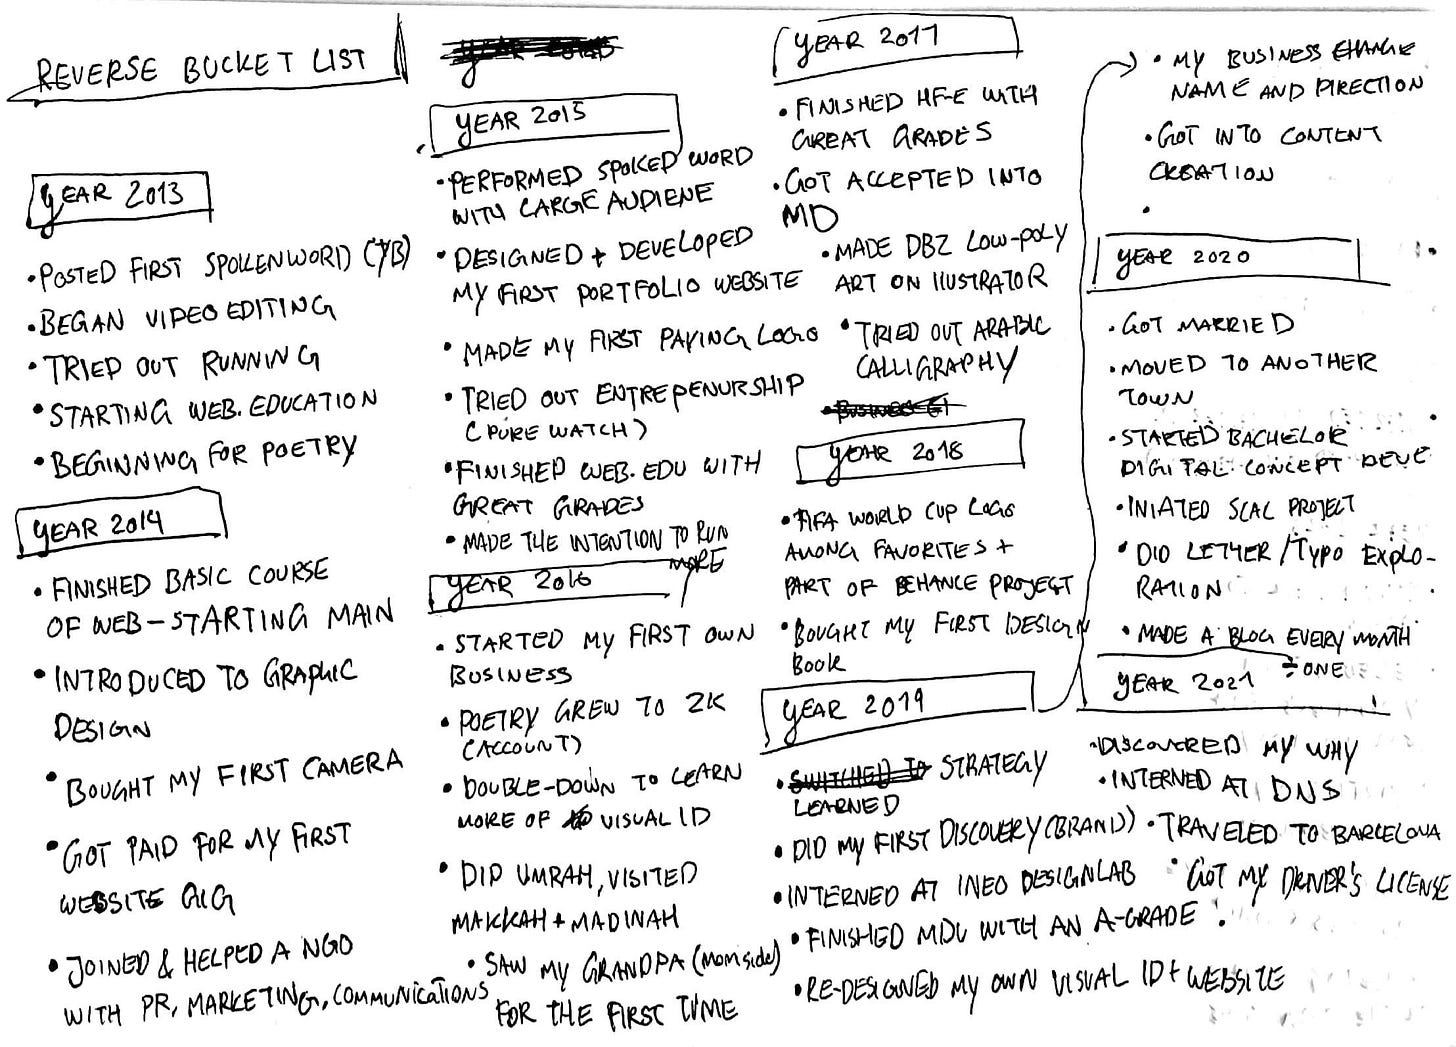 REVERSE BUCKET LIST
YEAR 2013
• POSTED FIRST SPOKENWORD (YB)
• BEGAN VIDEO EDITING
• TRIED OUT RUNNING
• STARTING WEB. EDUCATION
• BEGINNING FOR POETRY
YEAR 2014
• FINISHED BASIC COURSE
OF WEB - STARTING MAIN
• INTRODUCED TO GRAPHIC
DESIGN
• BOUGHT MY FIRST CAMERA
• GOT PAID FOR MY FIRST
WEBSITE GIG
• JOINED & HELPED A NGO
WITH PR, MARKETING, COMMUNICATIONS
YEAR 2015
• PERFORMED SPOKED WORD
WITH LARGE AUDIENE
• DESIGNED + DEVELOPED
MY FIRST PORTFOLIO WEBSITE
• MADE MY FIRST PAYING LOGO
• TRIED OUT ENTREPENURSHIP
(PURE WATCH)
• FINISHED WEB. EDU WITH
GREAT GRADES
• MADE THE INTENTION TO RUN
MORE
YEAR 2016
• STARTED MY FIRST OWN
BUSINESS
• POETRY GREW TO 2K
(ACCOUNT)
• DOUBLE-DOWN TO LEARN
MORE OF VISUAL ID
• DID UMRAH, VISITED
MAKKAH + MADINAH
• SAW MY GRANDPA (mom side)
FOR THE FIRST TIME
YEAR 2017
• FINISHED HF-E WITH
GREAT GRADES
• GOT ACCEPTED INTO
MD
• MADE DBZ LOW-POLY
ART ON IlUSTRATOR
• TRIED OUT ARABIC
CALLIGRAPHY
YEAR 2018
• FIFA WORLD CUP LOGO
AMONG FAVORITES +
PART OF BEHANCE PROJECT
• BOUGHT MY FIRST DESIGN
BOOK
YEAR 2019
• SWITCHED TO STRATEGY
LEARNED
• DID MY FIRST DISCOVERY (BRAND)
• INTERNED AT INEO DESIGNLAB
• FINISHED MDU WITH AN A-GRADE
• RE-DESIGNED MY OWN VISUAL ID + WEBSITE
• MY BUSINESS CHANGE
NAME AND DIRECTION
• GOT INTO CONTENT
CREATION
•
YEAR 2020
• GOT MARRIED
• MOVED TO ANOTHER
TOWN
• STARTED BACHELOR
DIGITAL CONCEPT DEVE
• INIATED SCAL PROJECT
• DID LETTER/TYPO EXPLO-
RATION
• MADE A BLOG EVERY MONTH
÷ ONE
YEAR 2021
• DISCOVERED MY WHY
• INTERNED AT DNS
• TRAVELED TO BARCELONA
• GOT MY DRIVER'S LICENSE